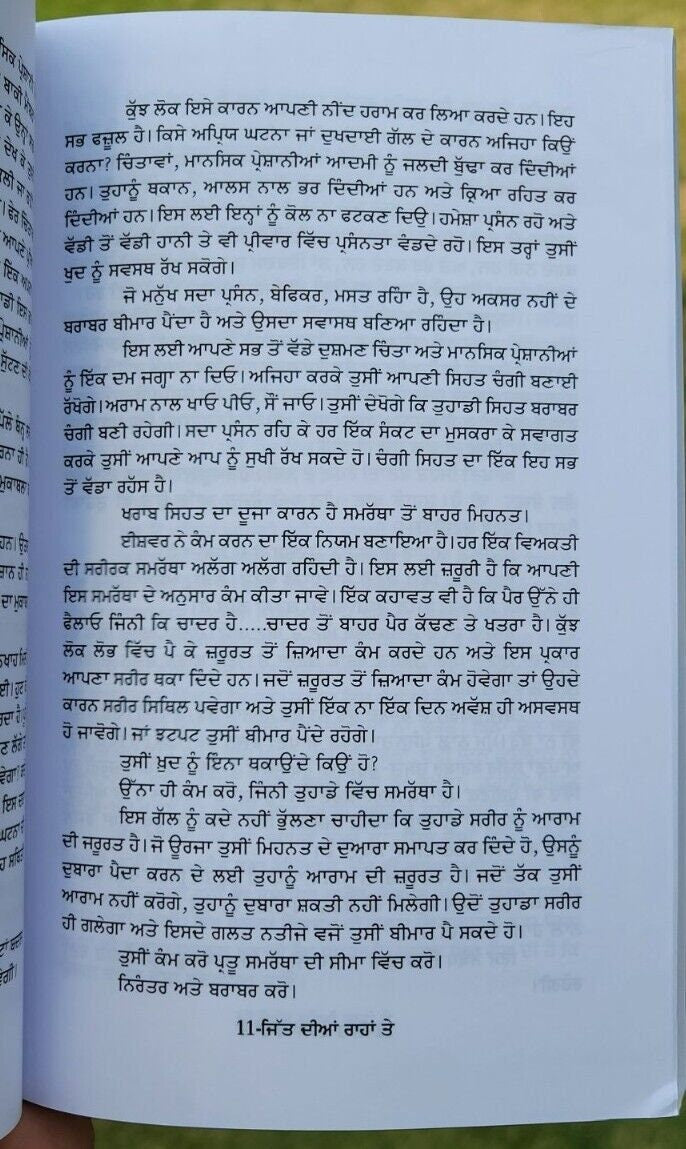 ਕੁੱਝ ਲੋਕ ਇਸੇ ਕਾਰਨ ਆਪਣੀ ਨੀਂਦ ਹਰਾਮ ਕਰ ਲਿਆ ਕਰਦੇ ਹਨ। ਇਹ
ਸਭ ਫਜ਼ੂਲ ਹੈ। ਕਿਸੇ ਅਪ੍ਰਿਯ ਘਟਨਾ ਜਾਂ ਦੁਖਦਾਈ ਗੱਲ ਦੇ ਕਾਰਨ ਅਜਿਹਾ ਕਿਉਂ
ਕਰਨਾ? ਚਿੰਤਾਵਾਂ, ਮਾਨਸਿਕ ਪ੍ਰੇਸ਼ਾਨੀਆਂ ਆਦਮੀ ਨੂੰ ਜਲਦੀ ਬੁੱਢਾ ਕਰ ਦਿੰਦੀਆਂ
ਹਨ। ਤੁਹਾਨੂੰ ਥਕਾਨ, ਆਲਸ ਨਾਲ ਭਰ ਦਿੰਦੀਆਂ ਹਨ ਅਤੇ ਕ੍ਰਿਆ ਰਹਿਤ ਕਰ
ਦਿੰਦੀਆਂ ਹਨ। ਇਸ ਲਈ ਇਨ੍ਹਾਂ ਨੂੰ ਕੋਲ ਨਾ ਫਟਕਣ ਦਿਉ। ਹਮੇਸ਼ਾ ਪ੍ਰਸੰਨ ਰਹੋ ਅਤੇ
ਵੱਡੀ ਤੋਂ ਵੱਡੀ ਹਾਨੀ ਤੇ ਵੀ ਪ੍ਰੀਵਾਰ ਵਿੱਚ ਪ੍ਰਸੰਨਤਾ ਵੰਡਦੇ ਰਹੋ। ਇਸ ਤਰ੍ਹਾਂ ਤੁਸੀਂ
ਖੁਦ ਨੂੰ ਸਵਸਥ ਰੱਖ ਸਕੋਗੇ।
ਜੋ ਮਨੁੱਖ ਸਦਾ ਪ੍ਰਸੰਨ, ਬੇਫਿਕਰ, ਮਸਤ ਰਹਿੰਾ ਹੈ, ਉਹ ਅਕਸਰ ਨਹੀਂ ਦੇ
ਬਰਾਬਰ ਬੀਮਾਰ ਪੈਂਦਾ ਹੈ ਅਤੇ ਉਸਦਾ ਸਵਾਸਥ ਬਣਿਆ ਰਹਿਦਾ ਹੈ।
ਇਸ ਲਈ ਆਪਣੇ ਸਭ ਤੋਂ ਵੱਡੇ ਦੁਸ਼ਮਣ ਚਿੰਤਾ ਅਤੇ ਮਾਨਸਿਕ ਪ੍ਰੇਸ਼ਾਨੀਆਂ
ਨੂੰ ਇੱਕ ਦਮ ਜਗ੍ਹਾ ਨਾ ਦਿਓ। ਅਜਿਹਾ ਕਰਕੇ ਤੁਸੀਂ ਆਪਣੀ ਸਿਹਤ ਚੰਗੀ ਬਣਾਈ
ਰੱਖੋਗੇ। ਅਰਾਮ ਨਾਲ ਖਾਓ ਪੀਓ, ਸੌਂ ਜਾਓ। ਤੁਸੀਂ ਦੇਖੋਗੇ ਕਿ ਤੁਹਾਡੀ ਸਿਹਤ ਬਰਾਬਰ
ਚੰਗੀ ਬਣੀ ਰਹੇਗੀ। ਸਦਾ ਪ੍ਰਸੰਨ ਰਹਿ ਕੇ ਹਰ ਇੱਕ ਸੰਕਟ ਦਾ ਮੁਸਕਰਾ ਕੇ ਸਵਾਗਤ
ਕਰਕੇ ਤੁਸੀਂ ਆਪਣੇ ਆਪ ਨੂੰ ਸੁਖੀ ਰੱਖ ਸਕਦੇ ਹੋ। ਚੰਗੀ ਸਿਹਤ ਦਾ ਇੱਕ ਇਹ ਸਭ
ਤੋਂ ਵੱਡਾ ਰਹੱਸ ਹੈ।
ਖਰਾਬ ਸਿਹਤ ਦਾ ਦੂਜਾ ਕਾਰਨ ਹੈ ਸਮਰੱਥਾ ਤੋਂ ਬਾਹਰ ਮਿਹਨਤ।
ਈਸ਼ਵਰ ਨੇ ਕੰਮ ਕਰਨ ਦਾ ਇੱਕ ਨਿਯਮ ਬਣਾਇਆ ਹੈ। ਹਰ ਇੱਕ ਵਿਅਕਤੀ
ਦੀ ਸਰੀਰਕ ਸਮਰੱਥਾ ਅਲੱਗ ਅਲੱਗ ਰਹਿੰਦੀ ਹੈ। ਇਸ ਲਈ ਜ਼ਰੂਰੀ ਹੈ ਕਿ ਆਪਣੀ
ਇਸ ਸਮਰੱਥਾ ਦੇ ਅਨੁਸਾਰ ਕੰਮ ਕੀਤਾ ਜਾਵੇ। ਇੱਕ ਕਹਾਵਤ ਵੀ ਹੈ ਕਿ ਪੈਰ ਉੱਨੇ ਹੀ
ਫੈਲਾਓ ਜਿੰਨੀ ਕਿ ਚਾਦਰ ਹੈ.....ਚਾਦਰ ਤੋਂ ਬਾਹਰ ਪੈਰ ਕੱਢਣ ਤੇ ਖਤਰਾ ਹੈ। ਕੁੱਝ
ਲੋਕ ਲੋਭ ਵਿੱਚ ਪੈ ਕੇ ਜ਼ਰੂਰਤ ਤੋਂ ਜ਼ਿਆਦਾ ਕੰਮ ਕਰਦੇ ਹਨ ਅਤੇ ਇਸ ਪ੍ਰਕਾਰ
ਆਪਣਾ ਸਰੀਰ ਥਕਾ ਦਿੰਦੇ ਹਨ। ਜਦੋਂ ਜ਼ਰੂਰਤ ਤੋਂ ਜ਼ਿਆਦਾ ਕੰਮ ਹੋਵੇਗਾ ਤਾਂ ਉਹਦੇ
ਕਾਰਨ ਸਰੀਰ ਸਿਥਿਲ ਪਵੇਗਾ ਅਤੇ ਤੁਸੀਂ ਇੱਕ ਨਾ ਇੱਕ ਦਿਨ ਅਵੱਸ਼ ਹੀ ਅਸਵਸਥ
ਹੋ ਜਾਵੋਗੇ। ਜਾਂ ਝਟਪਟ ਤੁਸੀਂ ਬੀਮਾਰ ਪੈਂਦੇ ਰਹੋਗੇ।
ਤੁਸੀਂ ਖ਼ੁਦ ਨੂੰ ਇੰਨਾ ਥਕਾਉਂਦੇ ਕਿਉਂ ਹੋ?
ਉੱਨਾ ਹੀ ਕੰਮ ਕਰੋ, ਜਿੰਨੀ ਤੁਹਾਡੇ ਵਿੱਚ ਸਮਰੱਥਾ ਹੈ।
ਇਸ ਗੱਲ ਨੂੰ ਕਦੇ ਨਹੀਂ ਭੁੱਲਣਾ ਚਾਹੀਦਾ ਕਿ ਤੁਹਾਡੇ ਸਰੀਰ ਨੂੰ ਆਰਾਮ
ਦੀ ਜਰੂਰਤ ਹੈ। ਜੋ ਊਰਜਾ ਤੁਸੀਂ ਮਿਹਨਤ ਦੇ ਦੁਆਰਾ ਸਮਾਪਤ ਕਰ ਦਿੰਦੇ ਹੋ, ਉਸਨੂੰ
ਦੁਬਾਰਾ ਪੈਦਾ ਕਰਨ ਦੇ ਲਈ ਤੁਹਾਨੂੰ ਆਰਾਮ ਦੀ ਜ਼ਰੂਰਤ ਹੈ। ਜਦੋਂ ਤੱਕ ਤੁਸੀਂ
ਆਰਾਮ ਨਹੀਂ ਕਰੋਗੇ, ਤੁਹਾਨੂੰ ਦੁਬਾਰਾ ਸ਼ਕਤੀ ਨਹੀਂ ਮਿਲੇਗੀ। ਉਦੋਂ ਤੁਹਾਡਾ ਸਰੀਰ
ਹੀ ਗਲੇਗਾ ਅਤੇ ਇਸਦੇ ਗਲਤ ਨਤੀਜੇ ਵਜੋਂ ਤੁਸੀਂ ਬੀਮਾਰ ਪੈ ਸਕਦੇ ਹੋ।
ਤੁਸੀਂ ਕੰਮ ਕਰੋ ਪ੍ਰਤੂ ਸਮਰੱਥਾ ਦੀ ਸੀਮਾ ਵਿੱਚ ਕਰੋ।
ਨਿਰੰਤਰ ਅਤੇ ਬਰਾਬਰ ਕਰੋ।
11-ਜਿੱਤ ਦੀਆਂ ਰਾਹਾਂ ਤੇ